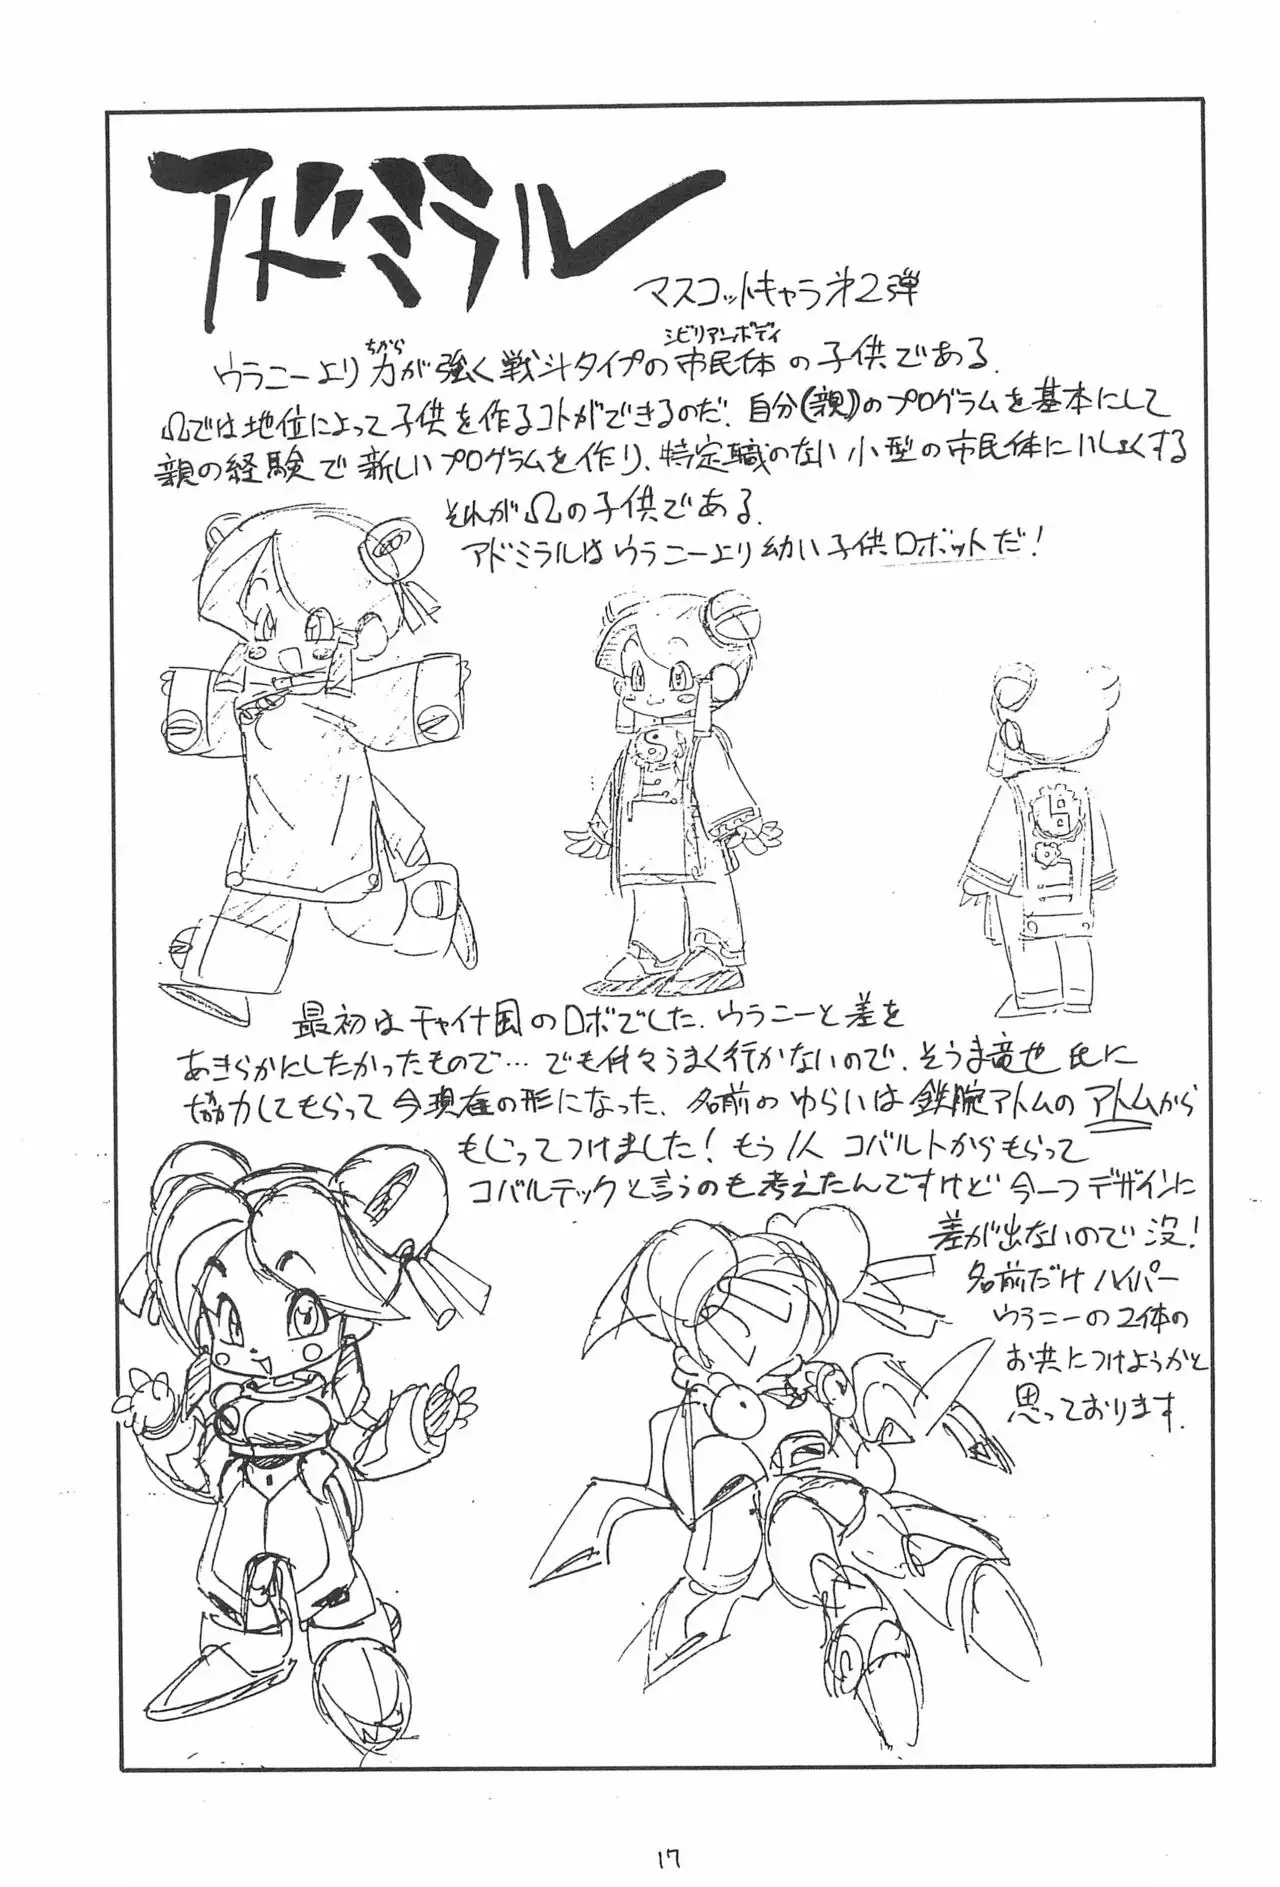 アドミラル
マスコットキャラ才2弾
ウラニーより力が強く戦斗タイプの市民体の子供である.
ちから
シビリアンボディ
Ωでは地位によって子供を作るコトができるのだ. 自分(親)のプログラムを基本にして
親の経験で新しいプログラムを作り、特定職のない小型の市民体にいしょくする
それがΩの子供である.
アドミラルはウラニーより幼い子供ロボットだ!
最初はチャイナ風のロボでした. ウラニーと差を
あきらかにしたかったもので…でも仲々うまく行かないので、そうま竜也氏に
協力してもらって今現在の形になった. 名前のゆらいは鉄腕アトムのアトムから
もじってつけました! もう1人コバルトからもらって
コバルテックと言うのも考えたんですけど今一つデザインに
差が出ないので没!
名前だけハイパー
ウラニーの2体の
お共につけようかと
思っております.
17